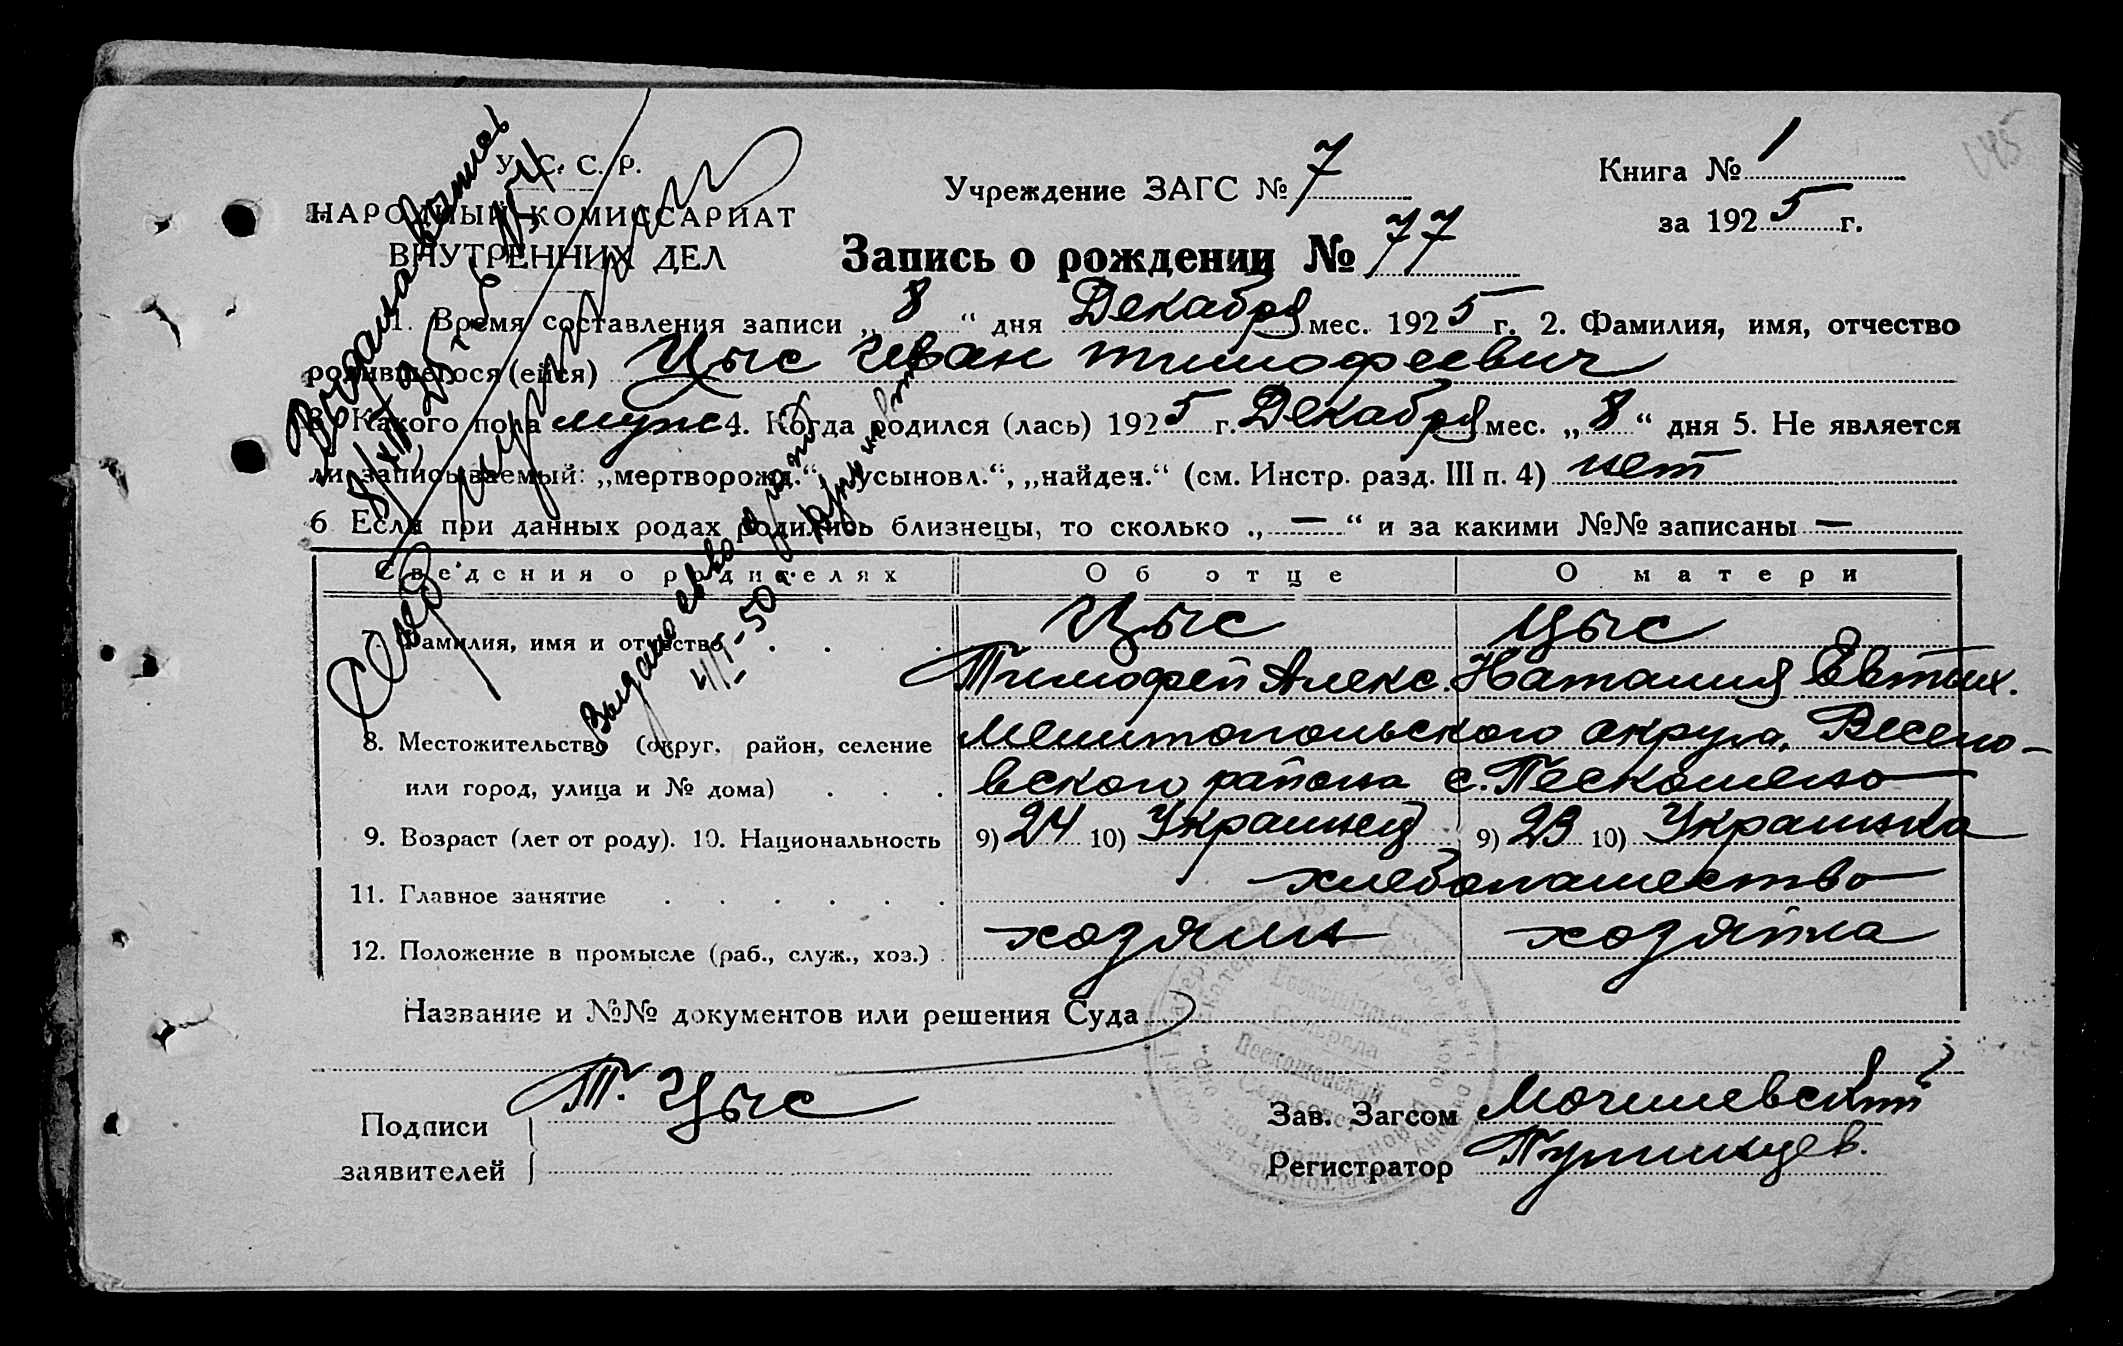 У. С. С. Р.
НАРОДНЫЙ КОМИССАРИАТ
ВНУТРЕННИХ ДЕЛ
Учреждение ЗАГС № 7
Книга № 1
за 1925 г.
145
Запись о рождении № 77
1. Время составления записи „8“ дня Декабря мес. 1925 г. 2. Фамилия, имя, отчество
родившегося (ейся) Цыс Иван Тимофеевич
3. Какого пола муж 4. Когда родился (лась) 1925 г. Декабря мес. „8“ дня 5. Не является
ли записываемый: „мертворожд.“ „усыновл.“, „найден.“ (см. Инстр. разд. III п. 4) нет
6 Если при данных родах родились близнецы, то сколько „—“ и за какими №№ записаны —
Сведения о родителях Об отце О матери
7. Фамилия, имя и отчество Цыс Цыс
Тимофей Алекс. Наталия Евтих.
8. Местожительство (округ, район, селение Мелитопольского округа, Весело-
или город, улица и № дома) вского района с. Пескошено
9. Возраст (лет от роду). 10. Национальность 9) 24 10) Украинец 9) 23 10) Украинка
11. Главное занятие хлебопашество
12. Положение в промысле (раб., служ., хоз.) хозяин хозяйка
Название и №№ документов или решения Суда
Подписи
заявителей
Т. Цыс
Зав. Загсом
Регистратор
Выдано
4/I-50 г.